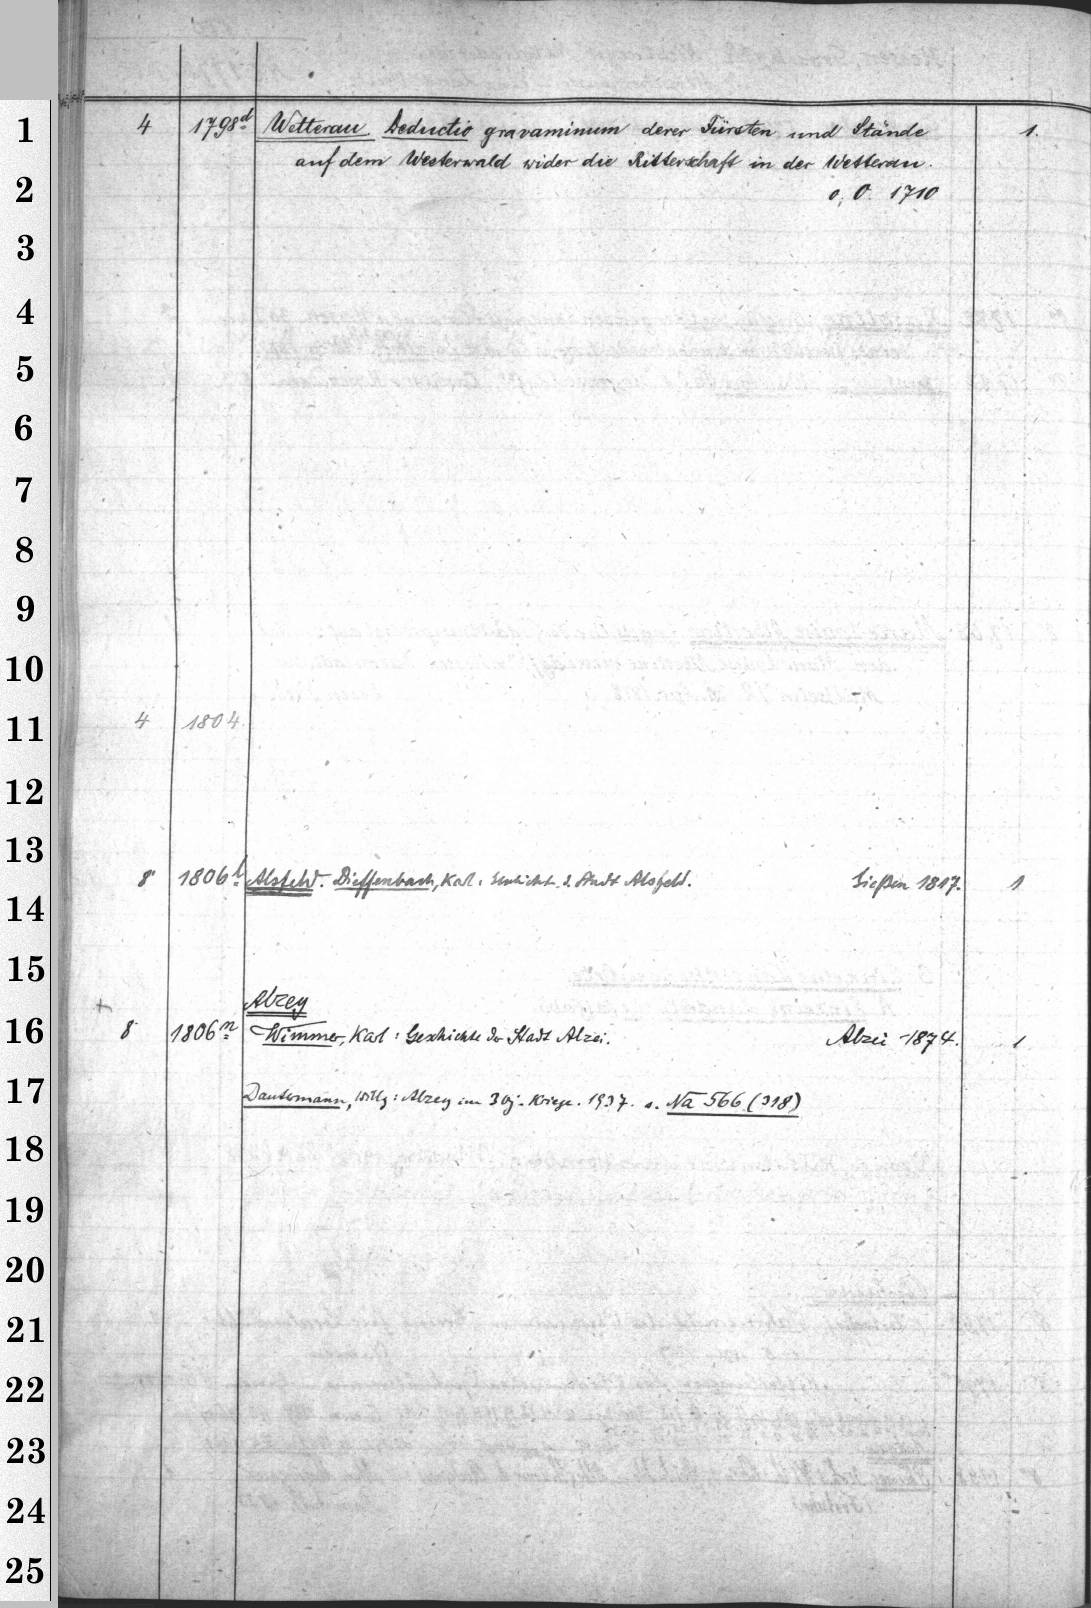 1
4 1798d Wetterau Deductio gravaminum derer Fürsten und Stände 1.
auf dem Westerwald wider die Ritterschaft in der Wetterau.
2
o. O. 1710
3
4
5
6
7
8
9
10
11
4 1804.
12
13
8° Alsfeld. Dieffenbach, Karl: Geschichte d. Stadt Alsfeld. Gießen 1817. 1
14
15
Alzey
16
8° 1806n Wimmer, Karl: Geschichte der Stadt Alzei. Alzei 1874. 1
17
Dautermann, Willy: Alzey im 30j. Kriege. 1937. s. Na 566 (318)
18
19
20
21
22
23
24
25